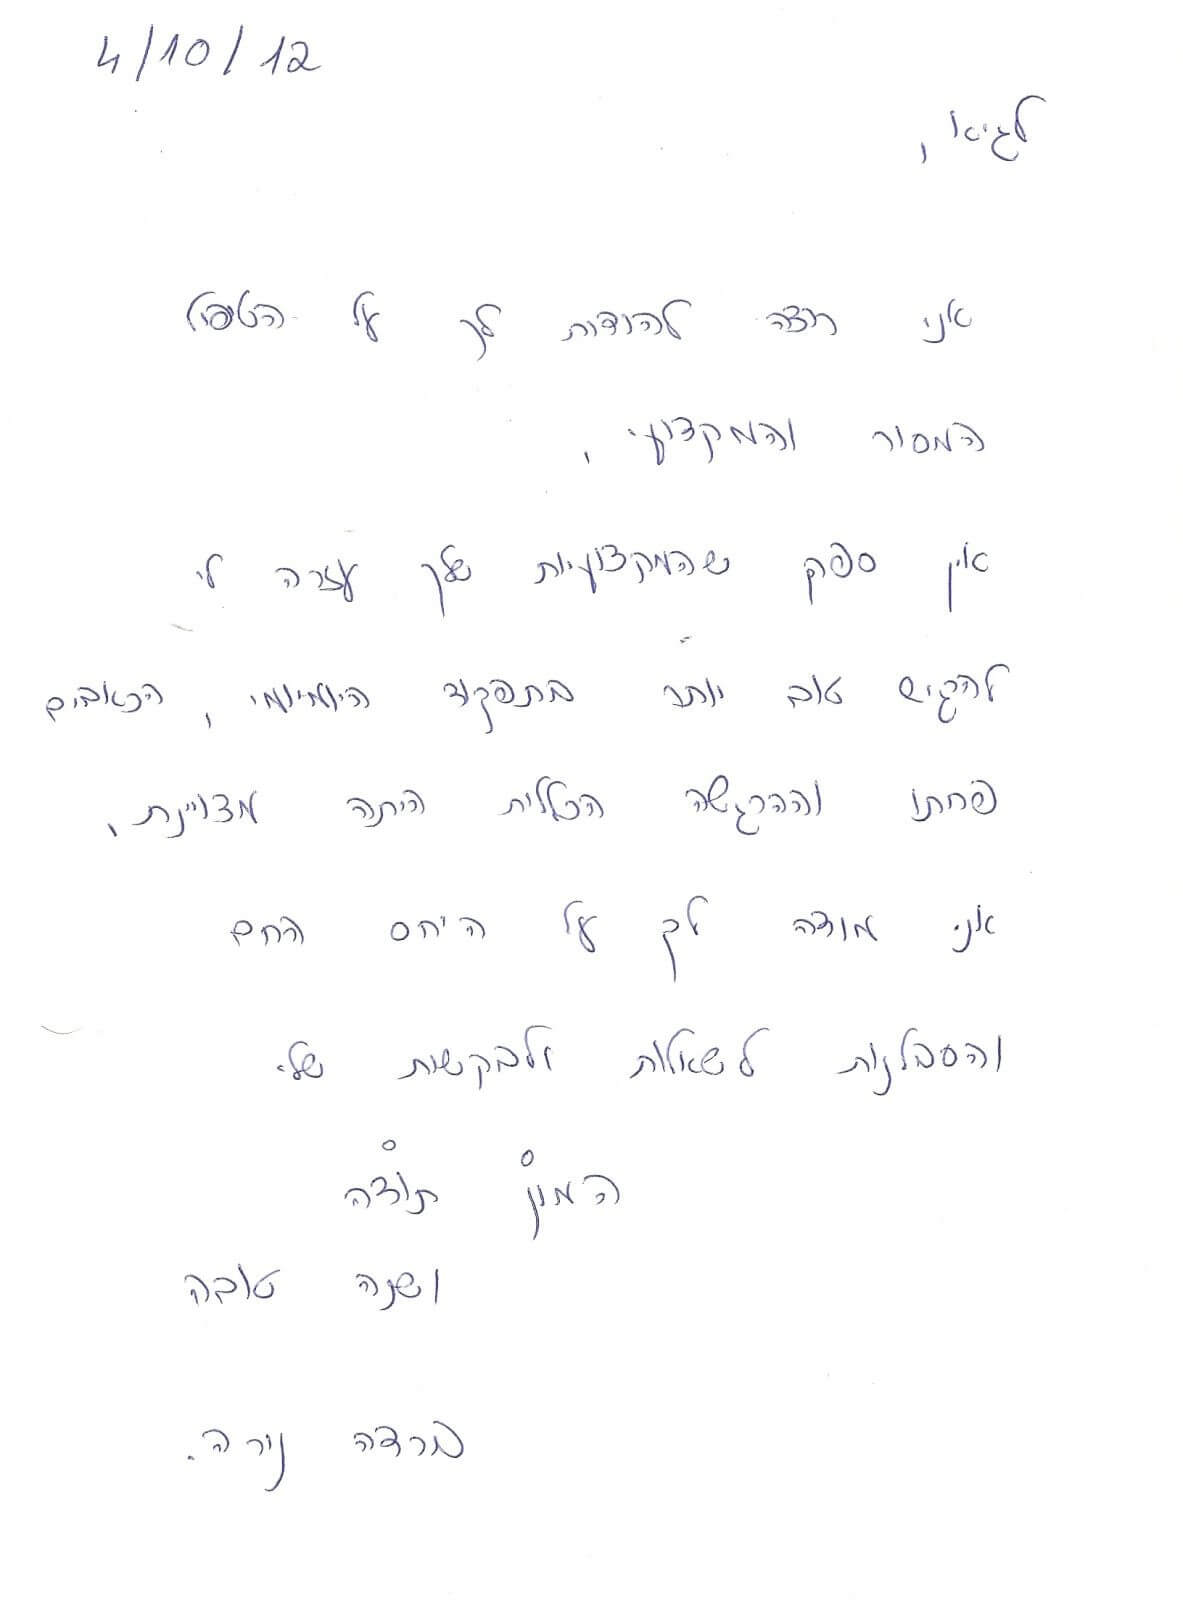 4/10/12
לגיא,
אני רוצה להודות לך על הטיפול
המסור והמקצועי,
אין ספק שהמקצועיות שלך עזרה לי
להרגיש טוב יותר בתפקוד היומיומי, הכאבים
פחתו וההרגשה הכללית היתה מצויינת,
אני מודה לך על היחס החם
והסבלנות לשאלות ולבקשות שלי
המון תודה
ושנה טובה
ורדה נירה.